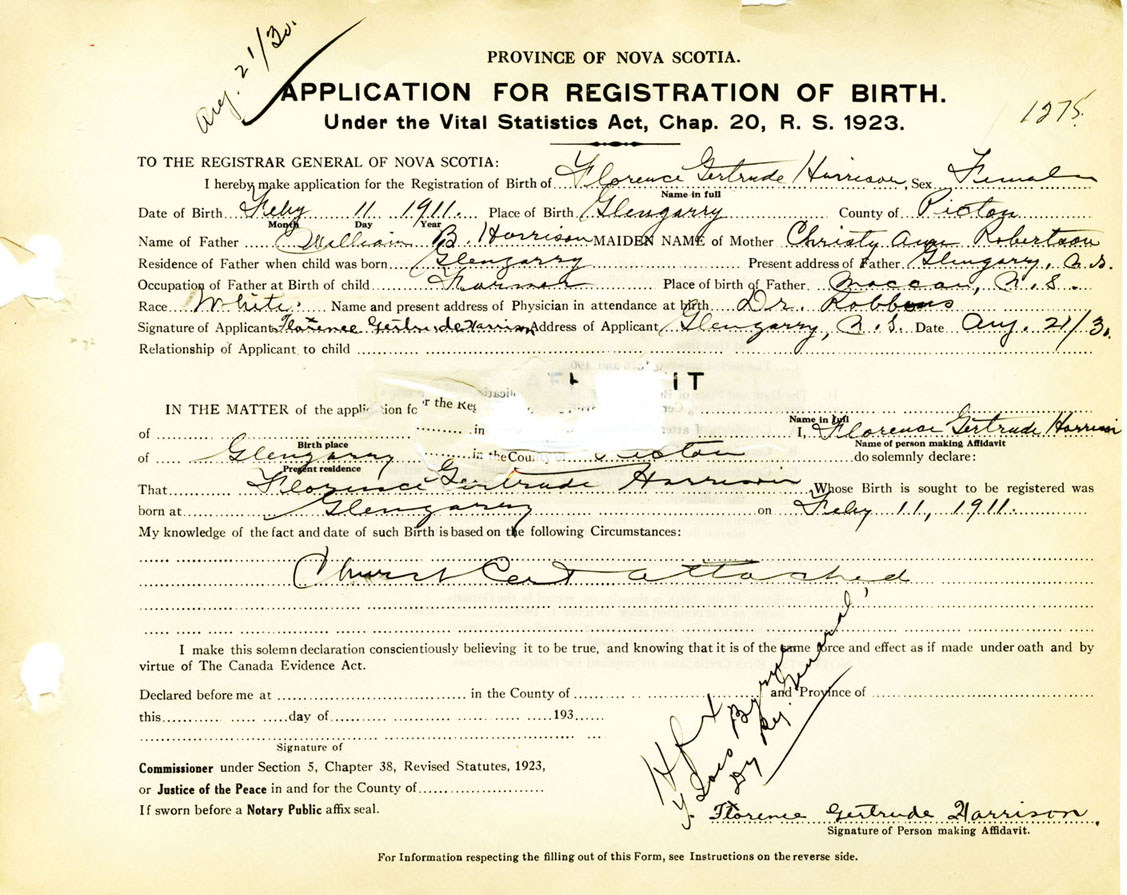 Aug. 21/30.
PROVINCE OF NOVA SCOTIA.
APPLICATION FOR REGISTRATION OF BIRTH.
1275
Under the Vital Statistics Act, Chap. 20, R. S. 1923.
TO THE REGISTRAR GENERAL OF NOVA SCOTIA:
I hereby make application for the Registration of Birth of Florence Gertrude Harrison, Sex Female
Name in full
Date of Birth Feby 11 1911. Place of Birth Glengarry County of Pictou
Month Day Year
Name of Father William B. Harrison MAIDEN NAME of Mother Christy Ann Robertson
Residence of Father when child was born Glengarry Present address of Father Glengarry, N.S.
Occupation of Father at Birth of child Farmer Place of birth of Father Maccan, N.S.
Race White. Name and present address of Physician in attendance at birth Dr. Robbens
Signature of Applicant Florence Gertrude Harrison Address of Applicant Glengarry, N.S. Date Aug. 21/30.
Relationship of Applicant to child
IT
IN THE MATTER of the applic or the Reg
Name in full
of in I, Florence Gertrude Harrison
Birth place Name of person making Affidavit
of Glengarry in the County Pictou do solemnly declare:
Present residence
That Florence Gertrude Harrison Whose Birth is sought to be registered was
born at Glengarry on Feby 11, 1911.
My knowledge of the fact and date of such Birth is based on the following Circumstances:
Church Cert attached
I make this solemn declaration conscientiously believing it to be true, and knowing that it is of the same force and effect as if made under oath and by
virtue of The Canada Evidence Act.
Declared before me at in the County of and Province of
this day of 193
Signature of
Commissioner under Section 5, Chapter 38, Revised Statutes, 1923,
or Justice of the Peace in and for the County of
If sworn before a Notary Public affix seal.
Dy Reg. General
Florence Gertrude Harrison
Signature of Person making Affidavit.
For Information respecting the filling out of this Form, see Instructions on the reverse side.